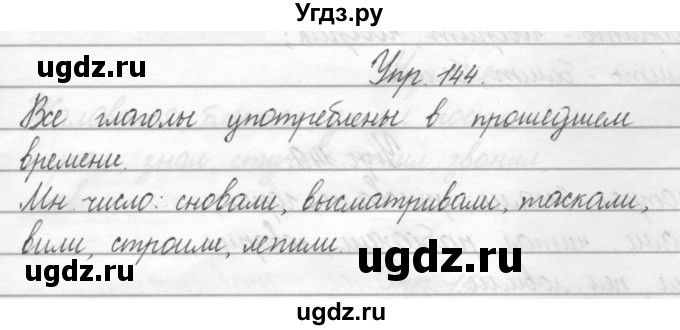 Угдз.ру
ugdz.ru ugdz.ru
Упр. 144.
Все глаголы употреблены в прошедшем
ugdz.ru
времени.
Мн число: сновали, высматривали, таскали,
вили, строили, лепили.
ugdz.ru ugdz.ru
ugdz.ru